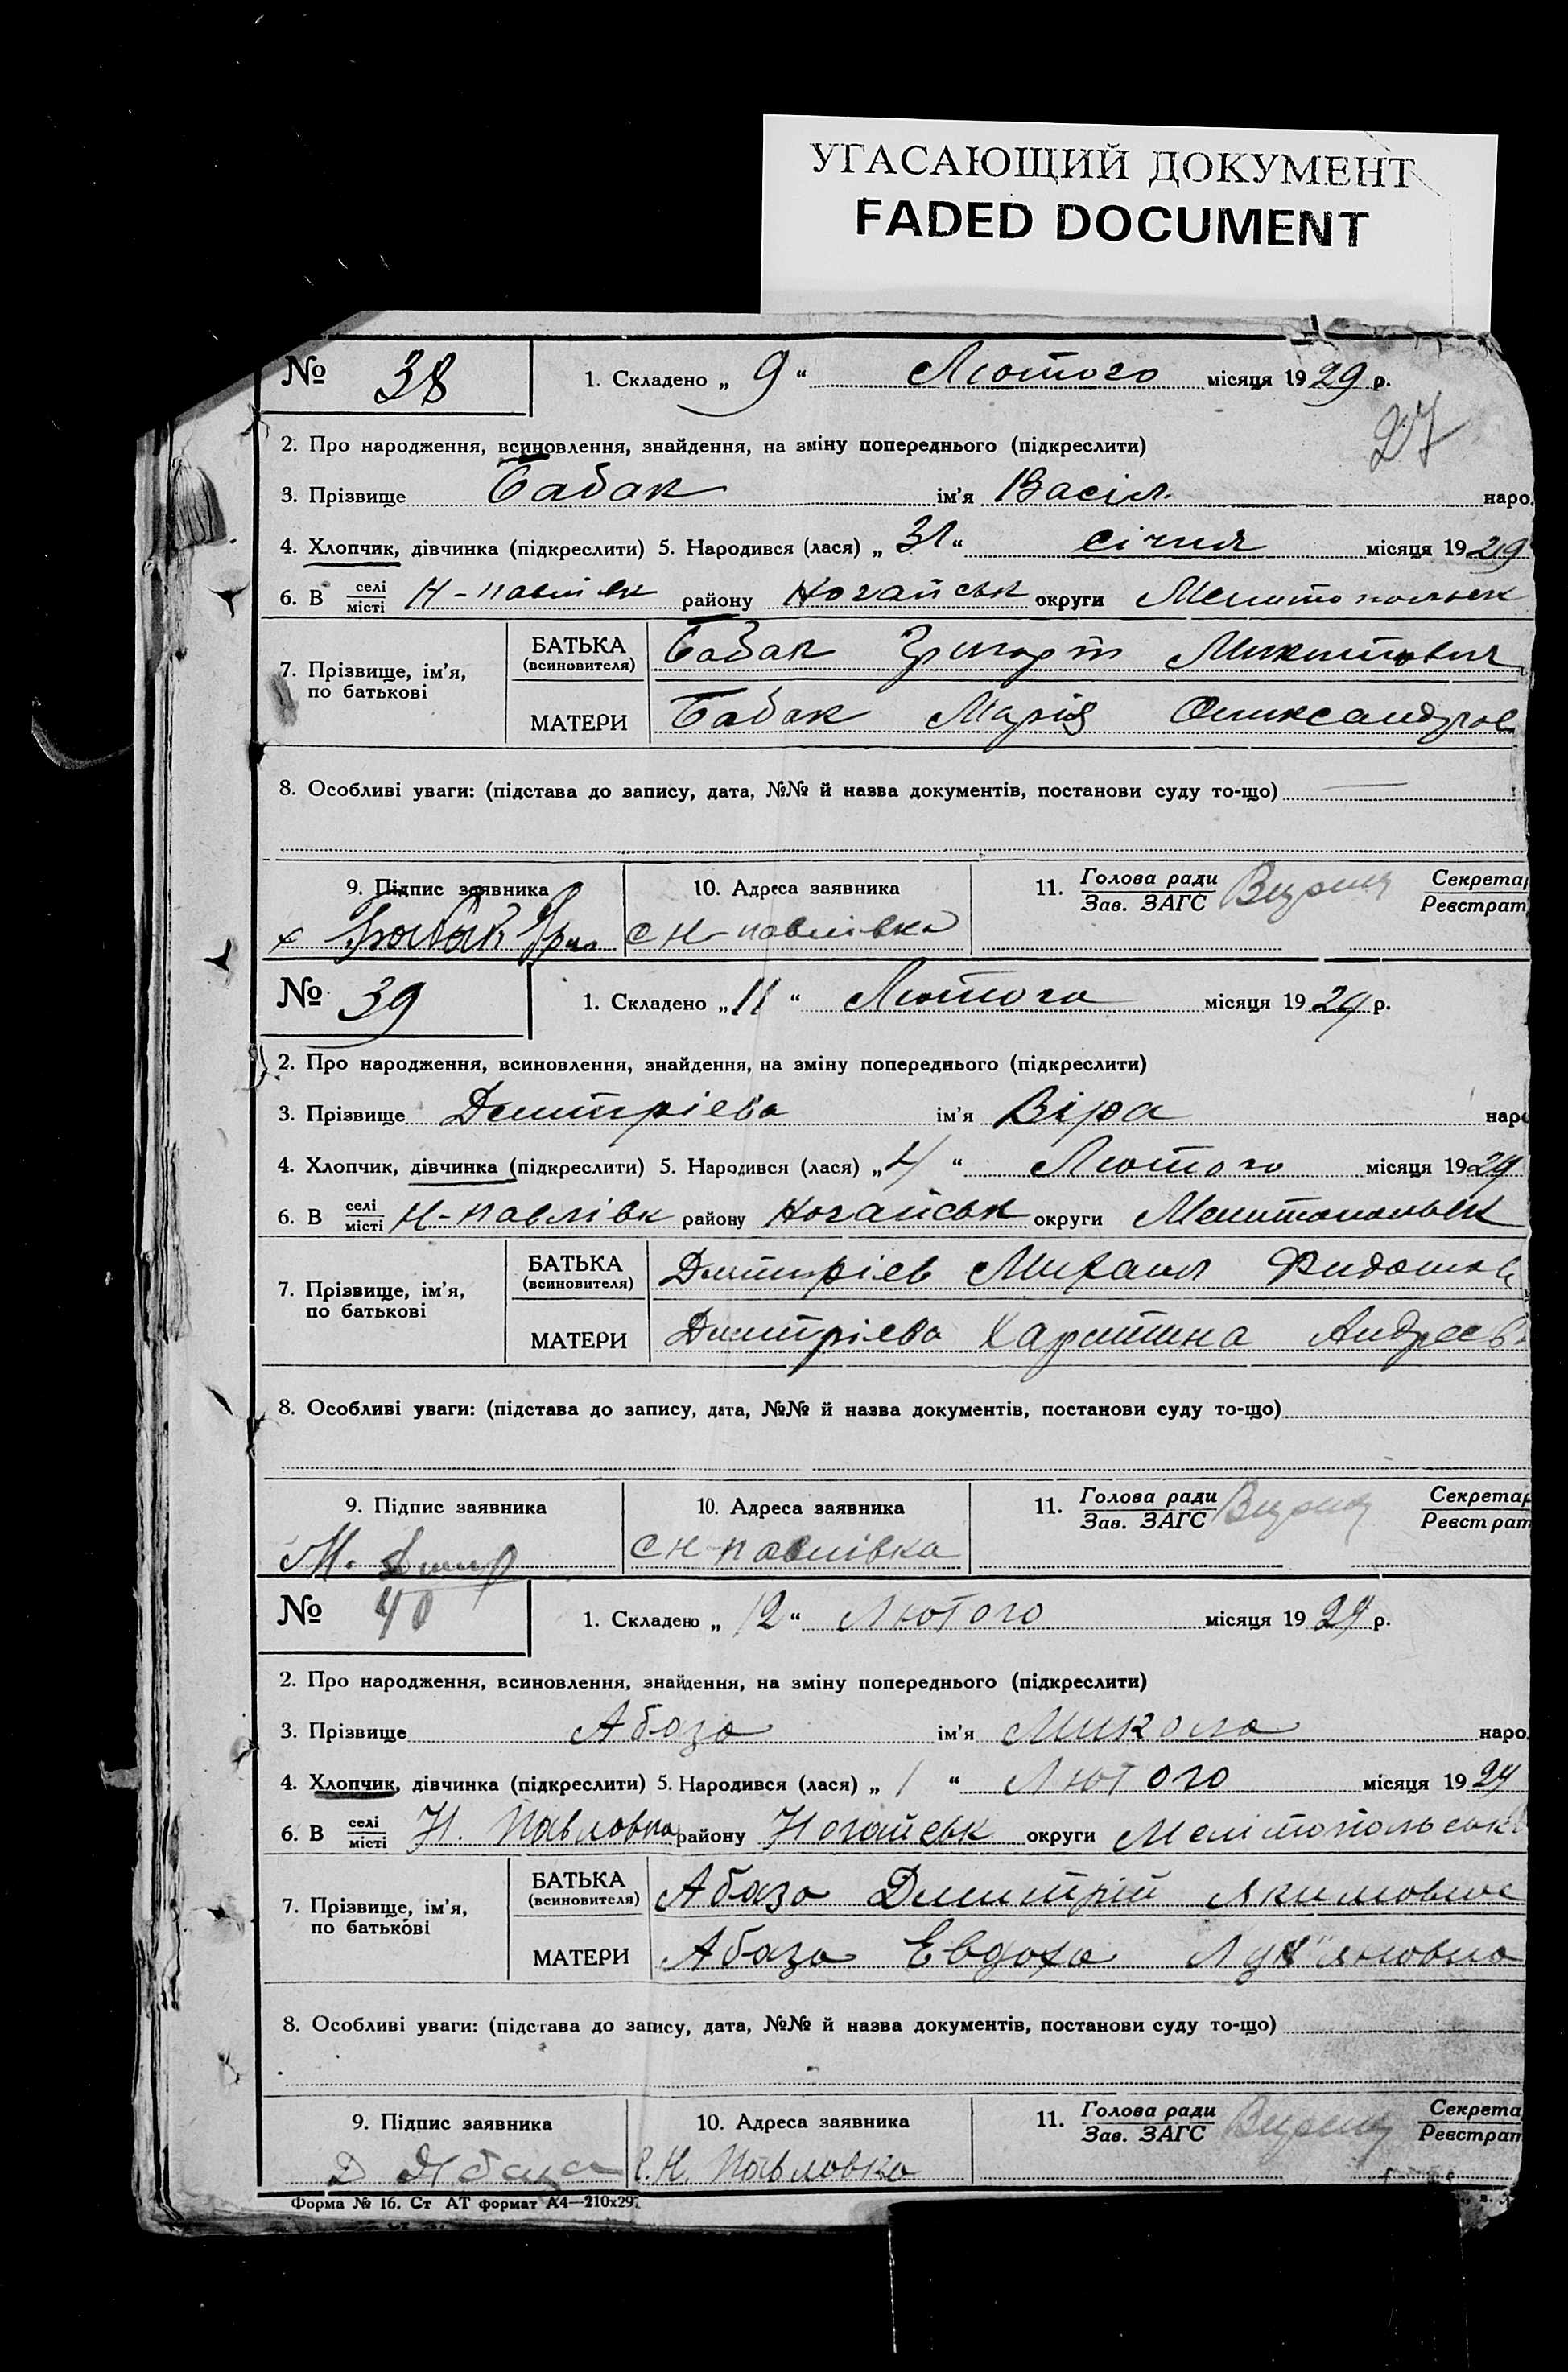 УГАСАЮЩИЙ ДОКУМЕНТ
FADED DOCUMENT
№ 38 1. Складено „ 9 “ Лютого місяця 19 29 р.
27
2. Про народження, всиновлення, знайдення, на зміну попереднього (підкреслити)
3. Прізвище Бабак ім'я Васіл наро
4. Хлопчик, дівчинка (підкреслити) 5. Народився (лася) „ 31 “ січня місяця 19 29
6. В селі місті Н-павлівк району Ногайськ округи Мелитопольск
7. Прізвище, ім'я, по батькові БАТЬКА (всиновителя) Бабак Григорій Микитович
МАТЕРИ Бабак Марія Олександров
8. Особливі уваги: (підстава до запису, дата, №№ й назва документів, постанови суду то-що)
9. Підпис заявника 10. Адреса заявника 11. Голова ради Зав. ЗАГС Секрета Реєстрат
х Бабак Гри с Н-павлівка
№ 39 1. Складено „ 11 “ Лютого місяця 19 29 р.
2. Про народження, всиновлення, знайдення, на зміну попереднього (підкреслити)
3. Прізвище Дмитрієва ім'я Віра наро
4. Хлопчик, дівчинка (підкреслити) 5. Народився (лася) „ 4 “ Лютого місяця 19 29
6. В селі місті Н-павлівк району Ногайськ округи Мелитопольск
7. Прізвище, ім'я, по батькові БАТЬКА (всиновителя) Дмитрієв Михаил
МАТЕРИ Дмитрієва Харитина Андреев
8. Особливі уваги: (підстава до запису, дата, №№ й назва документів, постанови суду то-що)
9. Підпис заявника 10. Адреса заявника 11. Голова ради Зав. ЗАГС Секретар Реєстрат
М. Дмитр с Н-павлівка
№ 40 1. Складено „ 12 “ Лютого місяця 19 29 р.
2. Про народження, всиновлення, знайдення, на зміну попереднього (підкреслити)
3. Прізвище Абаза ім'я Микола наро
4. Хлопчик, дівчинка (підкреслити) 5. Народився (лася) „ 1 “ Лютого місяця 19 29
6. В селі місті Н. Павловка району Ногайськ округи Мелітопольськ
7. Прізвище, ім'я, по батькові БАТЬКА (всиновителя) Абаза Дмитрій Якимович
МАТЕРИ Абаза Евдоха Лук"яновна
8. Особливі уваги: (підстава до запису, дата, №№ й назва документів, постанови суду то-що)
9. Підпис заявника 10. Адреса заявника 11. Голова ради Зав. ЗАГС Секрета Реєстрат
Д Абаза с. Н. Павловка
Форма № 16. Ст АТ формат А4—210х297